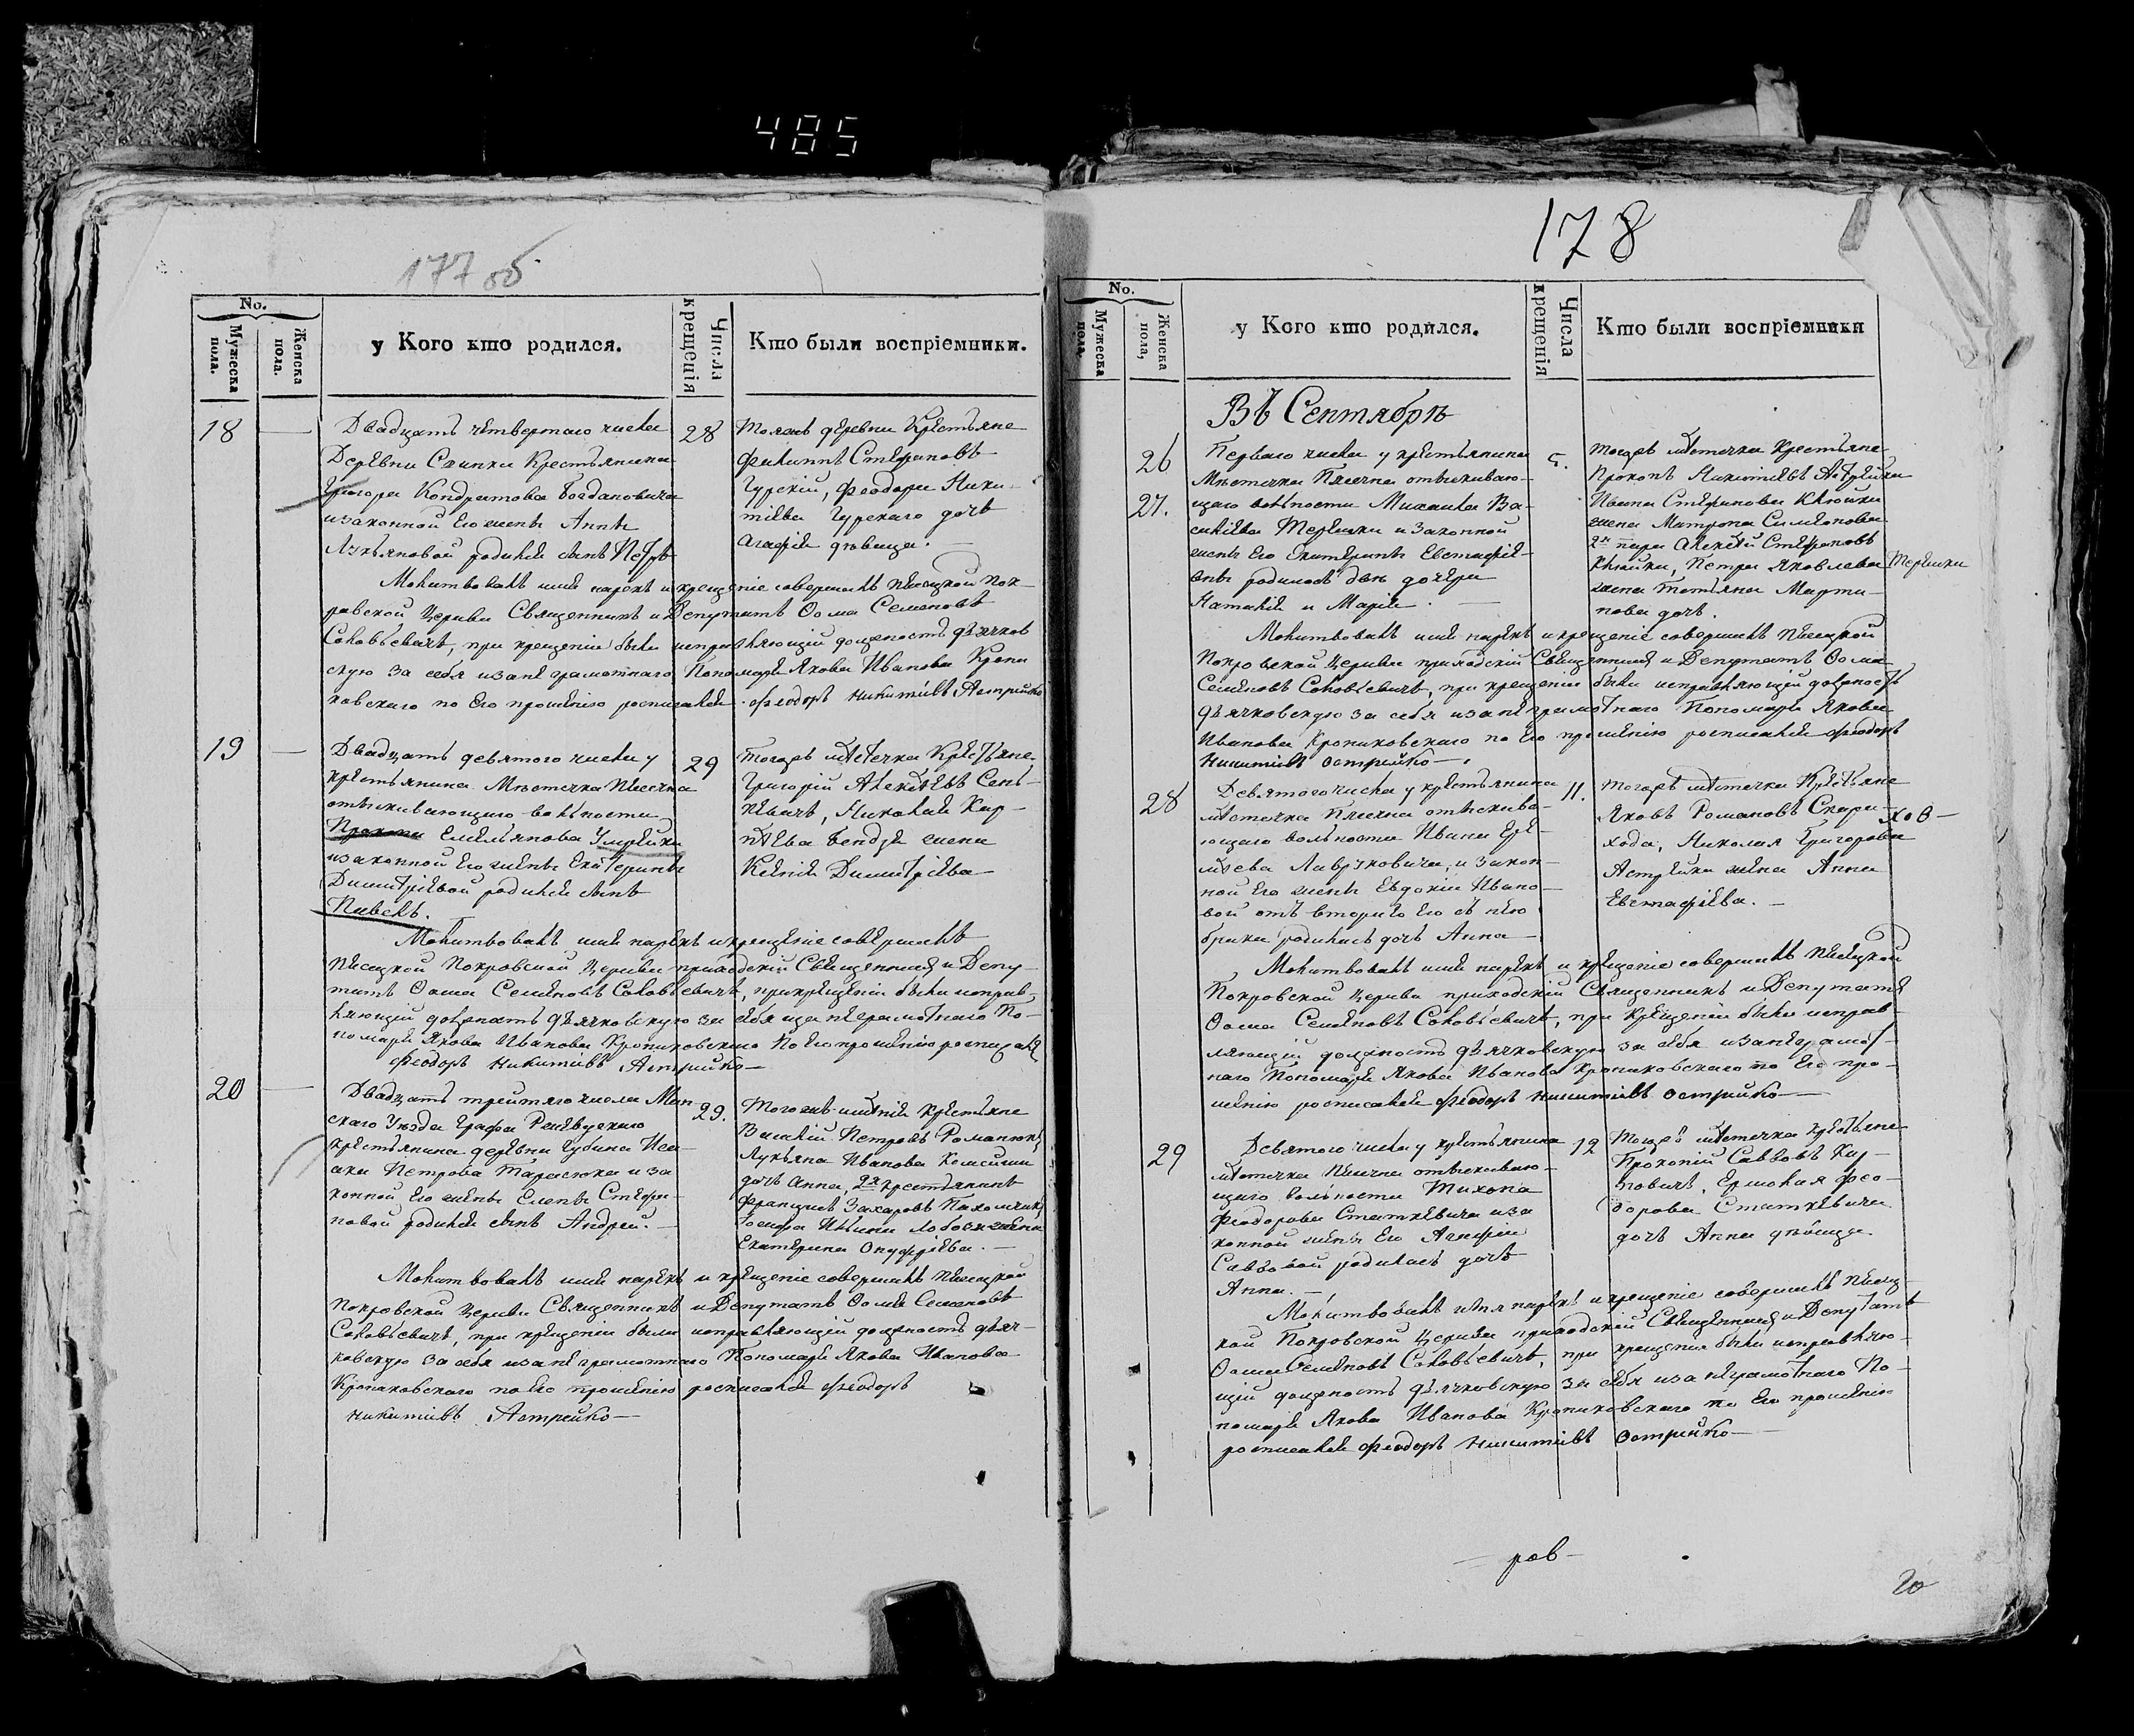 485
177 об
No.
Мужеска пола.
Женска пола.
у Кого кто родился.
Числа крещенія
Кто были воспріемники.
18
Двадцать четвертаго числа
Деревни Слипки Крестьянина
Григорія Кондратова Богдановича
и законной его жены Анны
Лукьяновой родился сынъ Петръ
28
Тояжъ деревни Крестьяне
Филиппъ Стефановъ
Гурскій, Феодора Ники-
тіева Гурскаго дочь
Агафія дѣвица.
Молитвовалъ имя нарекъ и крещеніе совершалъ Песецкой Пок-
ровской Церкви Священникъ и Депутатъ Ѳома Семеновъ
Соловьевичъ, при крещеніи были исправляющій должность дьячков
скую за себя и за не грамотнаго Пономаря Якова Иванова Кропи
ковскаго по его прошенію росписался Феодоръ Никитіевъ Астрейко
19
Двадцать девятого числа у
крестьянина Мѣстечка Песечна
отыскивающаго вольности
Прокопа Емельянова Умрейки
и законной его жены Екатерины
Димитріевой родился сынъ
Павелъ.
29
Тогожъ мѣстечка Крестьяне
Григорій Алексѣевъ Сень-
кевичъ, Николая Кар-
пѣева Бендзи жена
Ксенія Димитріева
Молитвовалъ имя нарекъ и крещеніе совершалъ
Песецкой Покровской Церкви приходскій Священникъ и Депу-
татъ Ѳома Семеновъ Соловьевичъ, при крещеніи были исправ-
ляющій должность дьячковскую за себя и за неграмотнаго По-
номаря Якова Иванова Кропиковскаго по его прошенію росписался
Феодоръ Никитіевъ Астрейко
20
Двадцать третяго числа Мин
скаго Уезда Графа Ржевускаго
крестьянина деревни Чубина Иса-
акы Петрова Тарасюка и за
конной его жены Елены Стефа-
новой родился сынъ Андрей.
29.
Тогожъ имѣнія Крестьяне
Василій Петровъ Романюкъ,
Лукьяна Иванова
дочь Анна, 2я Крестьянинъ
Францискъ Захаровъ
Іосифа Ильина жена
Екатерина Онуфріева.
Молитвовалъ имя нарекъ и крещеніе совершалъ Песецкой
Покровской Церкви Священникъ и Депутатъ Ѳома Семеновъ
Соловьевичъ, при крещеніи были исправляющій должность дьяч-
ковскую за себя и за не грамотнаго Пономаря Якова Иванова
Кропиковскаго по его прошенію росписался Феодоръ
Никитіевъ Астрейко
178
No.
Мужеска пола,
Женска пола,
у Кого кто родился.
Числа крещенія
Кто были воспріемники
Въ Сентябрѣ
26
27.
Перваго числа у крестьянина
Мѣстечка Песечна отыскиваю-
щаго вольности Михаила Ва-
силіева Терешки и законной
жены его Екатерины Евстафіе-
вны родилось двѣ дочери
Наталія и Марія.
5.
Тогожъ мѣстечка Крестьяне
Прокопъ Никитіевъ Астрейки
Ивана Стефанова Клюйки
жена Матрона Симеонова
2я пара Алексѣй Стефановъ
Клюйка, Петра Яковлева Терешки
жена Татьяна Марти-
нова дочь.
Молитвовалъ имя нарекъ и крещеніе совершалъ Песецкой
Покровской Церкви приходскій Священникъ и Депутатъ Ѳома
Семеновъ Соловьевичъ, при крещеніи были исправляющій должность
дьячковскую за себя и за не грамотнаго Пономаря Якова
Иванова Кропиковскаго по его прошенію росписался Феодоръ
Никитіевъ Острейко
28
Девятого числа у крестьянина
мѣстечка Песечна отыскива-
ющаго вольности Ивана Ере-
мѣева Лавриковича, и закон-
ной его жены Евдокіи Ивано-
вой отъ втораго его съ нею
брака родилась дочь Анна
11.
Тогожъ мѣстечка Крестьяне
Яковъ Романовъ Скари-
хода, Николая Григорова
Астрейки жена Анна
Евстафіева.
хов-
Молитвовалъ имя нарекъ и крещеніе совершалъ Песецкой
Покровской Церкви приходскій Священникъ и Депутатъ
Ѳома Семеновъ Соловьевичъ, при крещеніи были исправ-
ляющій должность дьячковскую за себя и за неграмот-
наго Пономаря Якова Иванова Кропиковскаго по его про-
шенію росписался Феодоръ Никитіевъ Острейко
29
Девятого числа у крестьянина
мѣстечка Песечна отыскиваю-
щаго вольности Тихона
Феодорова Статкевича и за
конной жены его Агафіи
Саввовой родилась дочь
Анна.
12
Тогожъ мѣстечка Крестьяне
Прокопій Саввовъ Кар-
повичъ, Ермолая Фео-
дорова Статкевича
дочь Анна дѣвица.
Молитвовалъ имя нарекъ и крещеніе совершалъ Песец-
кой Покровской Церкви приходскій Священникъ и Депутатъ
Ѳома Семеновъ Соловьевичъ, при крещеніи были исправляю-
щій должность дьячковскую за себя и за неграмотнаго По-
номаря Якова Иванова Кропиковскаго по его прошенію
росписался Феодоръ Никитіевъ Острейко
-ров-
20